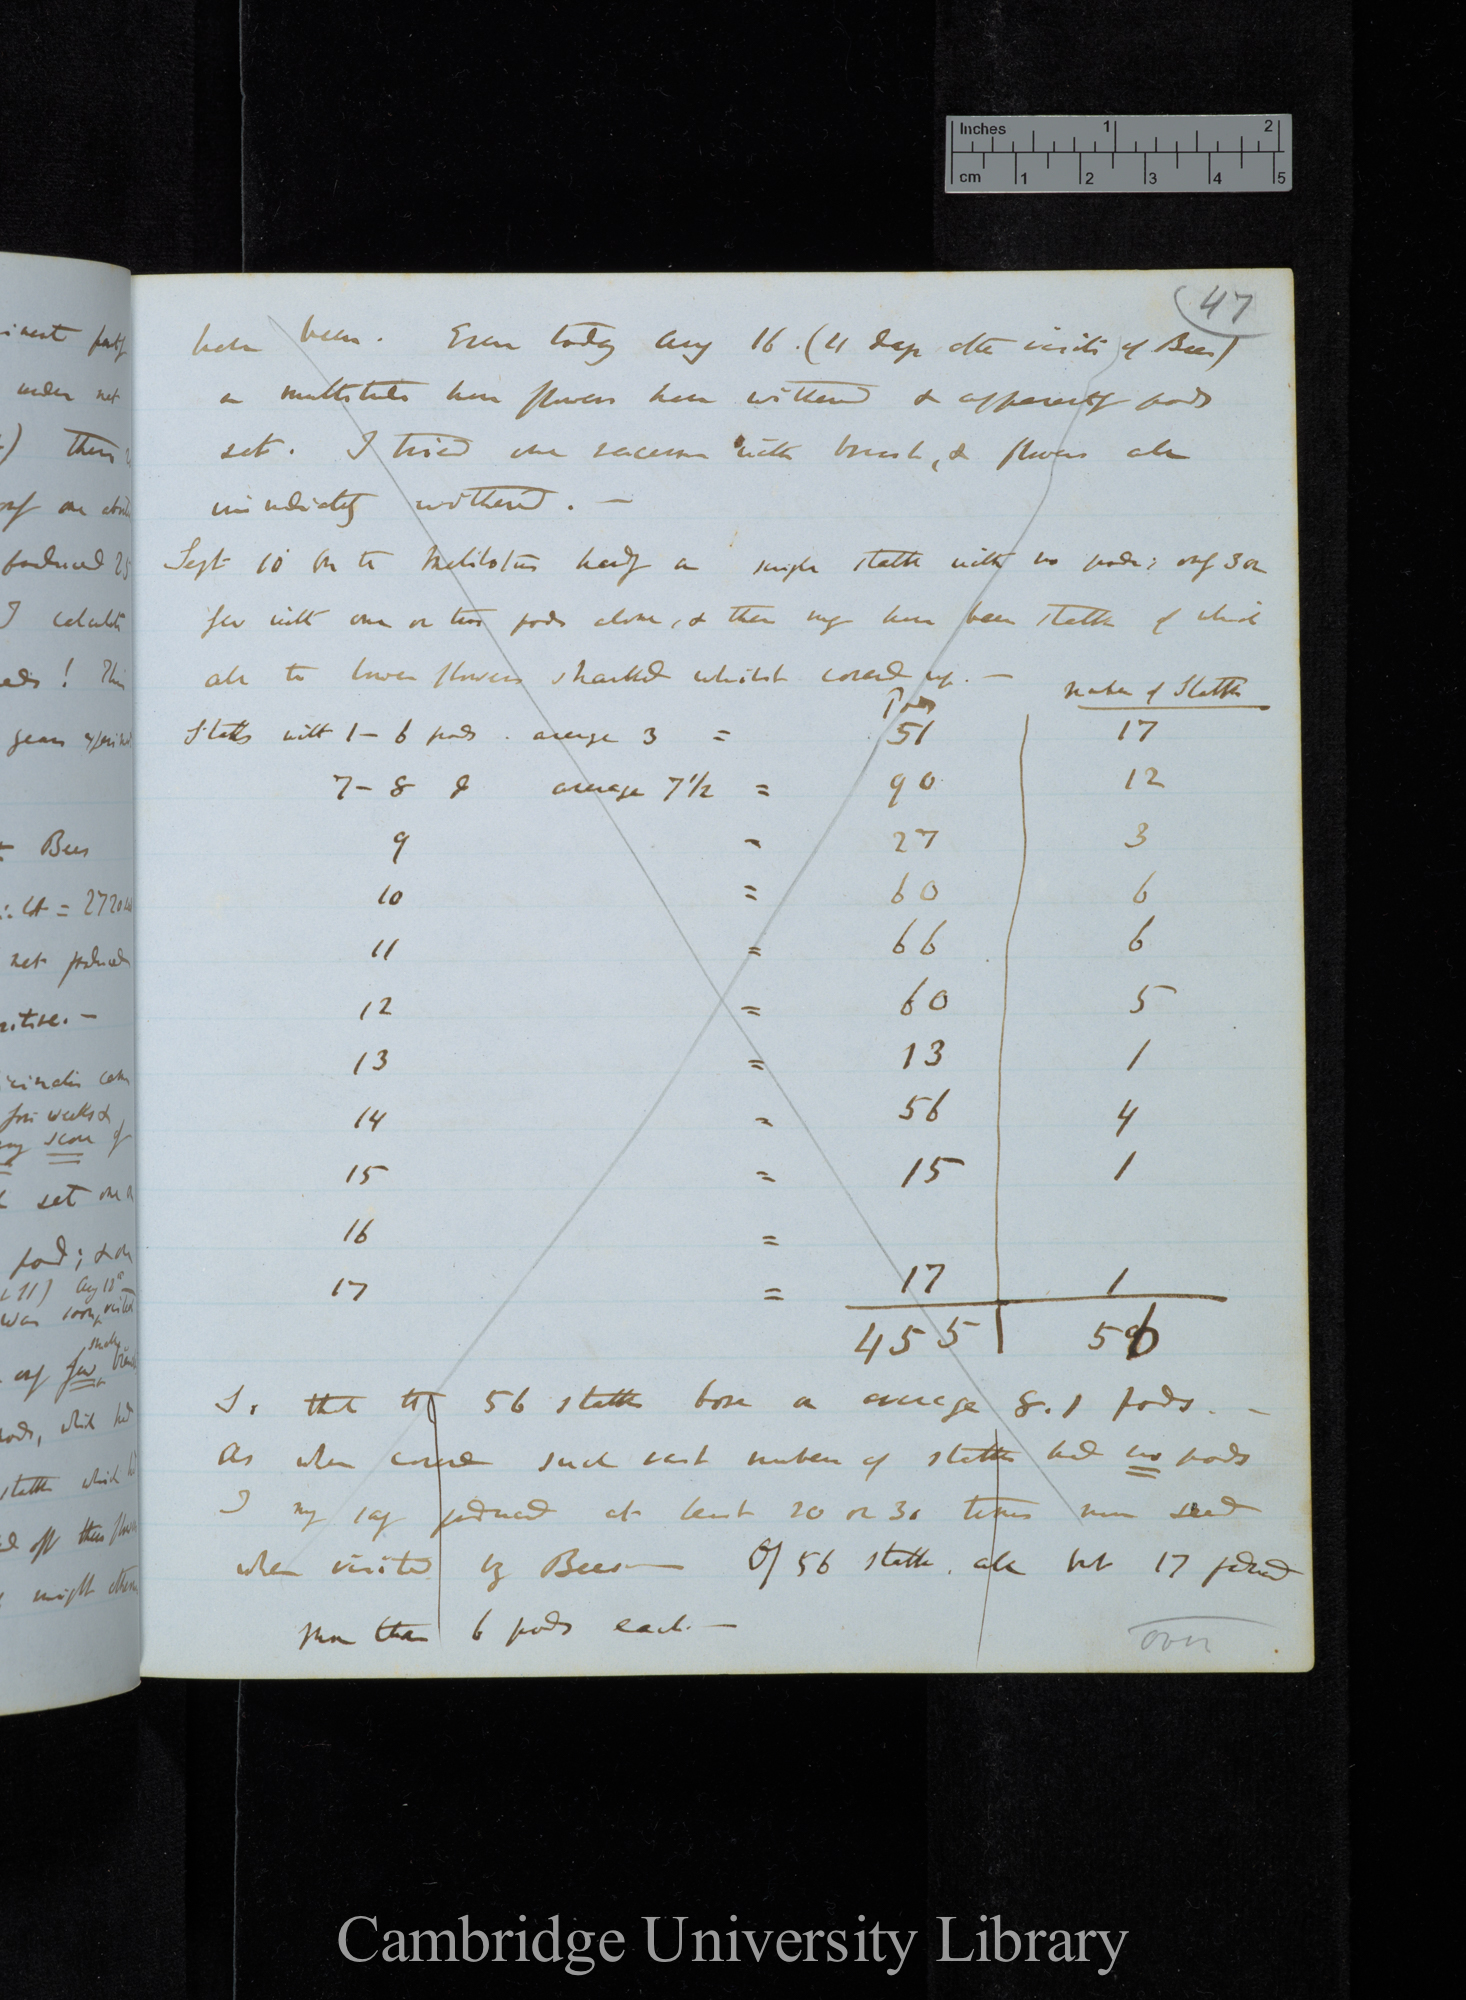 Inches 1 2
cm 1 2 3 4 5
47
been. Even today Aug 16. (4 days after visits of Bees)
a multitude have flowers have withered & apparently pods
set. I tried one raceme with brush, & flowers also
immediately withered. —
Sept 10 On the Melilotus hardly a single stalk with no pods; only 3 or
few with one or two pods alone, & these may have been stalks of which
all the lower flowers shaded whilst covered up. —
Pods
number of Stalks
Stalks with 1–6 pods. average 3 = 51 17
7–8 average 7 1/2 = 90 12
9 = 27 3
10 = 60 6
11 = 66 6
12 = 60 5
13 = 13 1
14 = 56 4
15 = 15 1
16 =
17 = 17 1
455 56
So that the 56 stalks bore on average 8.1 pods. —
As when covered such vast number of stalks had no pods
I may say produced at least 20 or 30 times more seed
when visited by Bees — Of 56 stalks, all but 17 produced
more than 6 pods each. —
over
under net
produced 25
I calculate
! This
Bees
= 2720
net produced
weeks &
score of
set one or
pod; & on
Aug 18th
was soon visited
only few
pods, which had
stalks which
off these flowers
might
Cambridge University Library